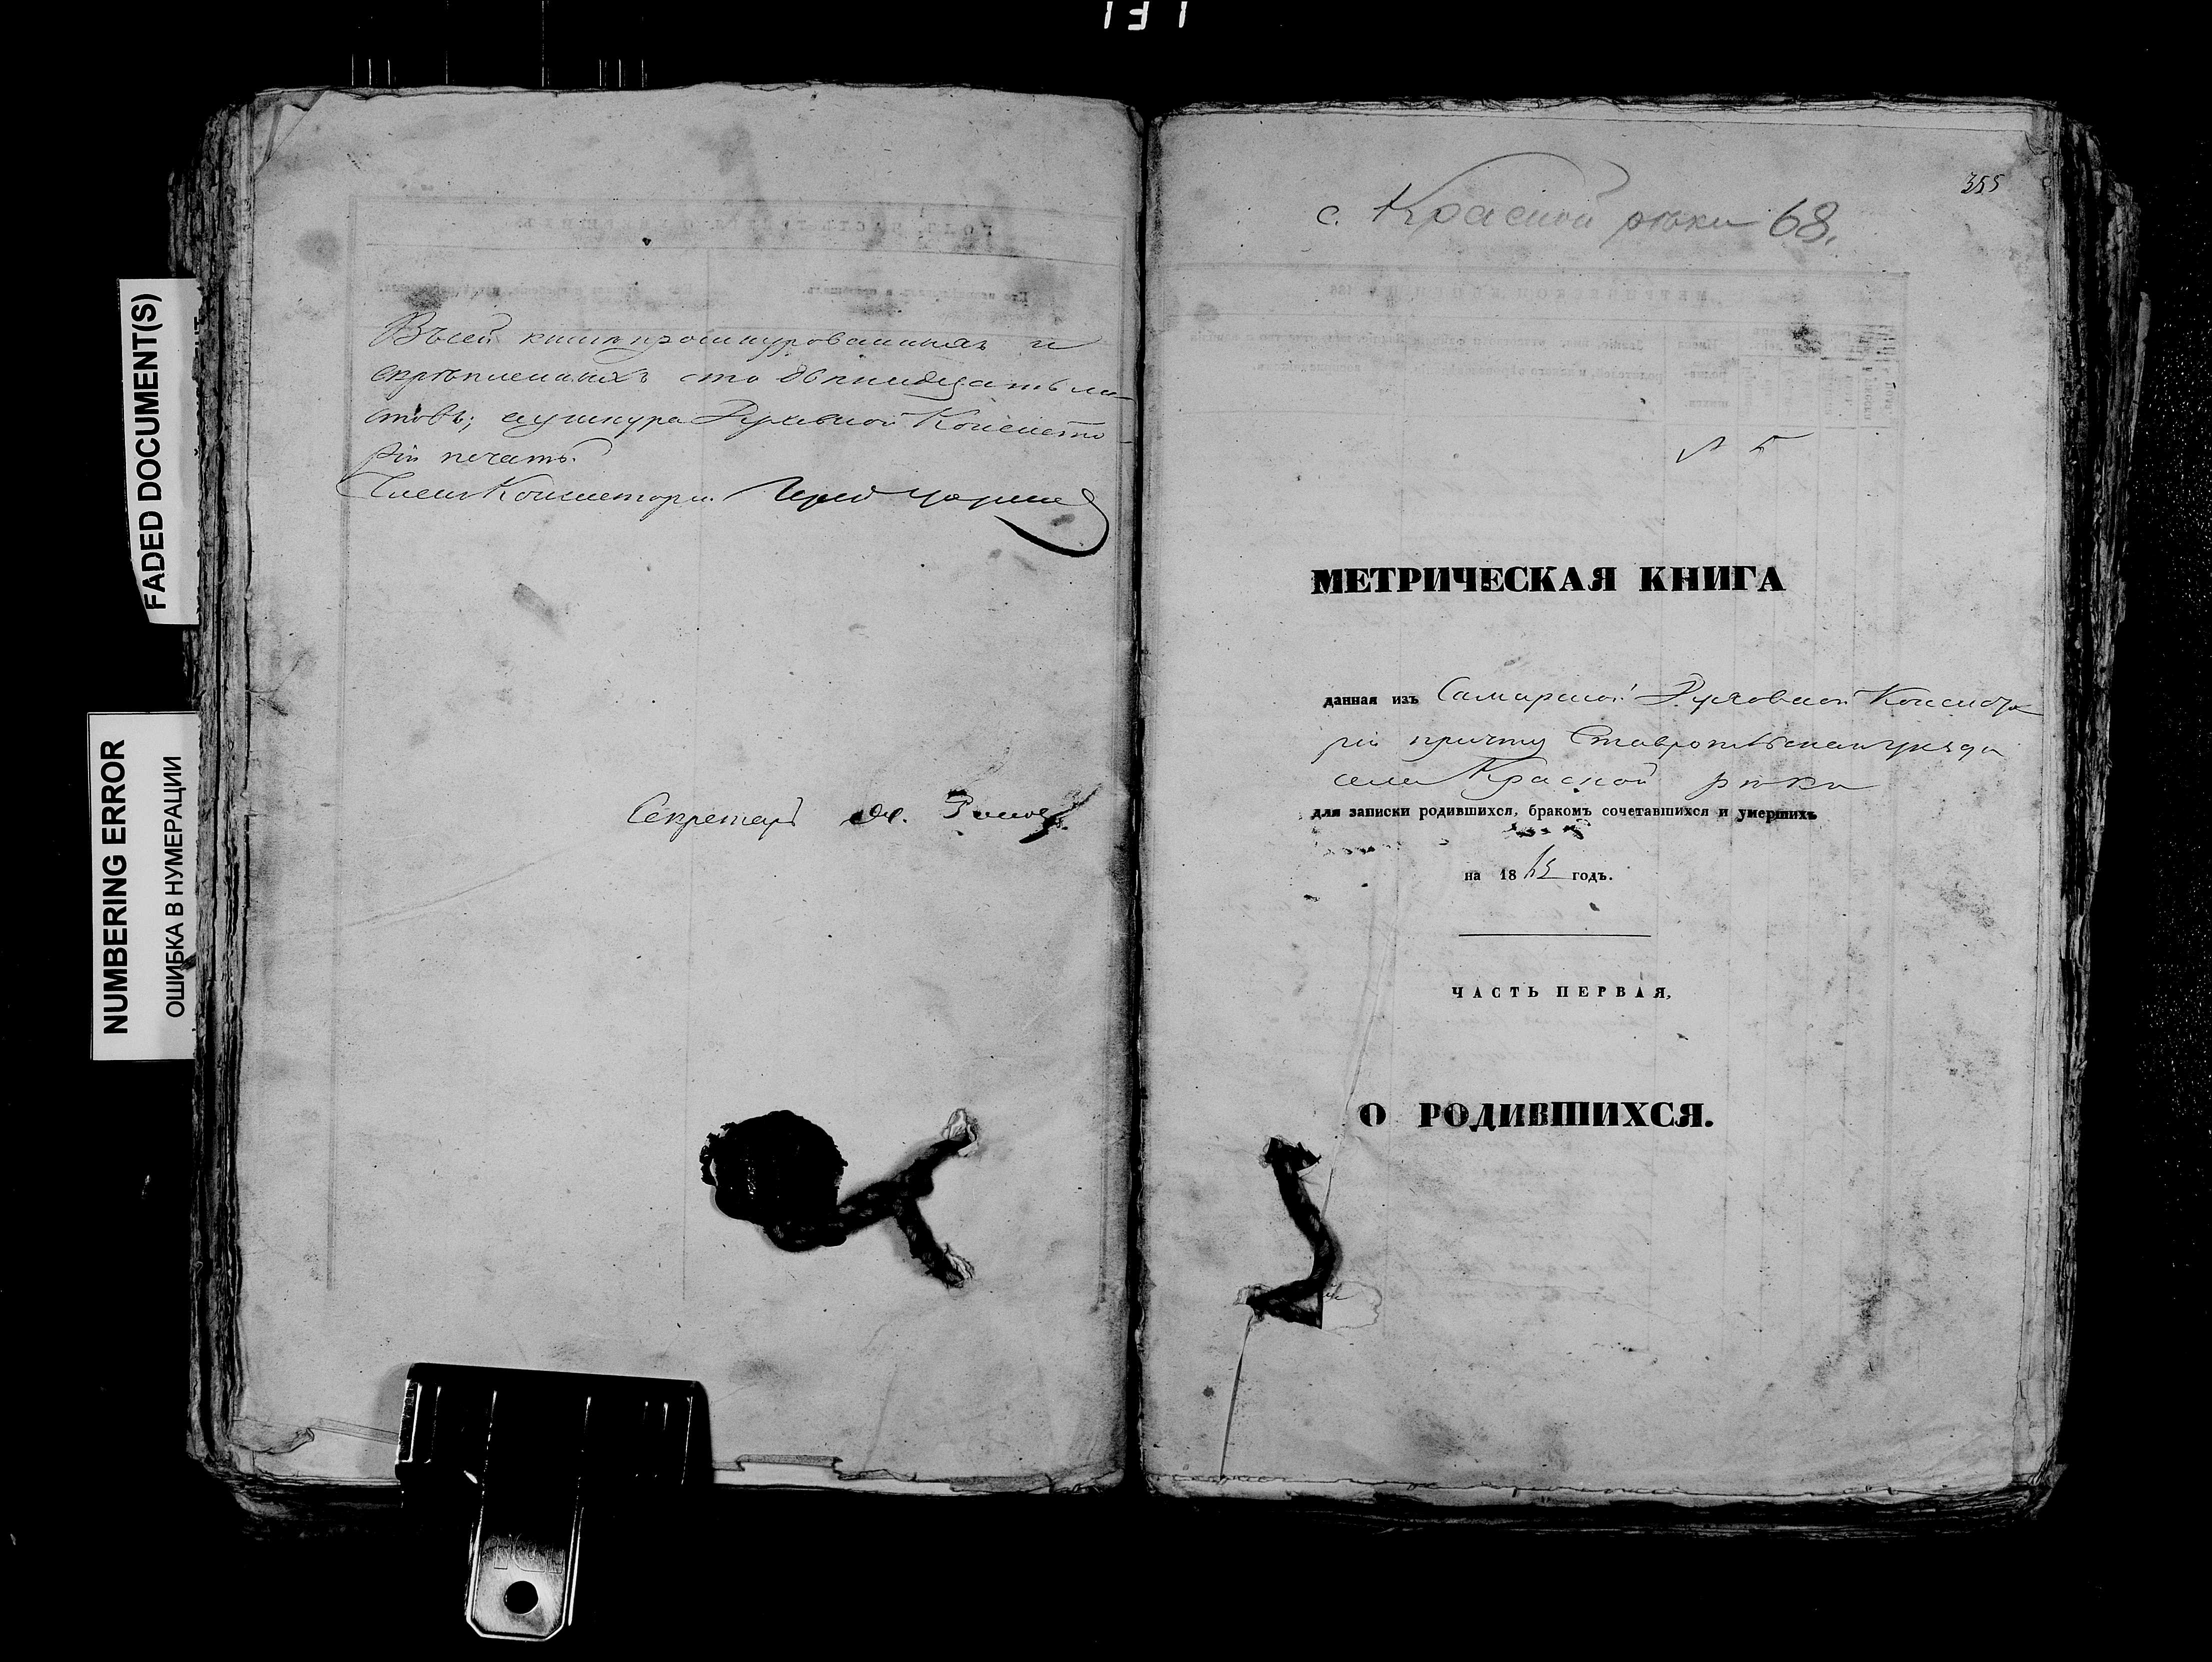 FADED DOCUMENT(S)
NUMBERING ERROR
ОШИБКА В НУМЕРАЦИИ
Въ сей книгѣ прошнурованныхъ и
скрѣпленныхъ сто двенадцать ли-
стовъ; у шнура Духовной Консисто-
ріи печать.
Членъ Консисторіи
Секретарь
355
с. Красной рѣки 68.
МЕТРИЧЕСКАЯ КНИГА
данная изъ Самарской Духовной Консисто-
ріи причту Ставропольскаго уѣзда
села Красной рѣки
для записки родившихся, бракомъ сочетавшихся и умершихъ
на 18 годъ.
ЧАСТЬ ПЕРВАЯ,
О РОДИВШИХСЯ.